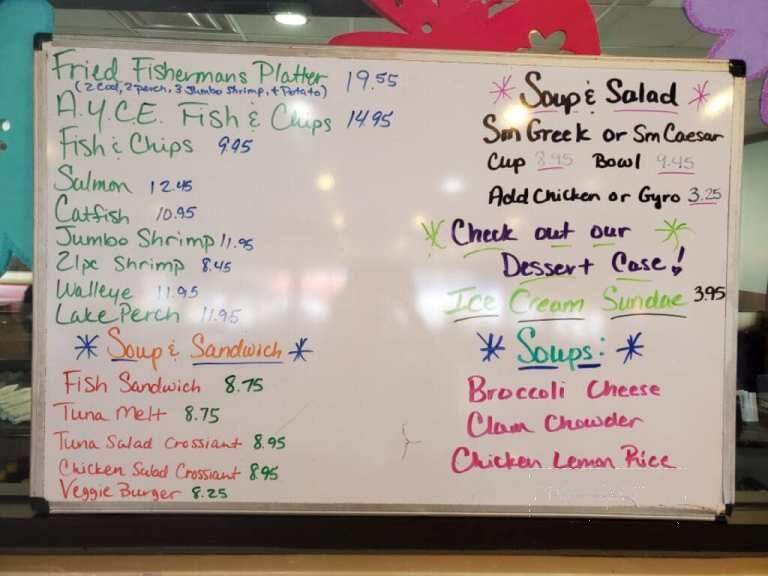 Fried Fishermans Platter 19.55
(2 Cod, 2 perch, 3 Jumbo Shrimp, + Potato)
A.Y.C.E. Fish & Chips 14.95
Fish & Chips 9.95
Salmon 12.45
Catfish 10.95
Jumbo Shrimp 11.95
21pc Shrimp 8.45
Walleye 11.95
Lake Perch 11.95
Soup & Sandwich
Fish Sandwich 8.75
Tuna Melt 8.75
Tuna Salad Crossiant 8.95
Chicken Salad Crossiant 8.95
Veggie Burger 8.25
Soup & Salad
Sm Greek or Sm Caesar
Cup 8.95 Bowl 9.45
Add Chicken or Gyro 3.25
Check out our
Dessert Case!
Ice Cream Sundae 3.95
Soups:
Broccoli Cheese
Clam Chowder
Chicken Lemon Rice